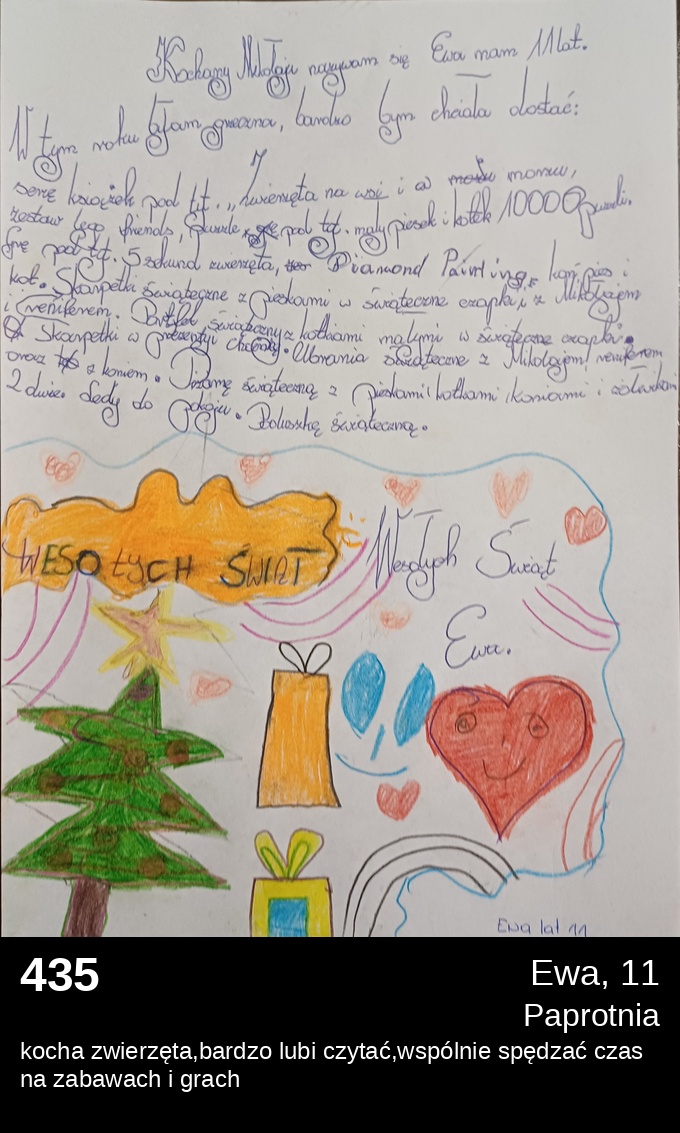 Kochany Mikołaju nazywam się Ewa mam 11 lat.
W tym roku byłam grzeczna, bardzo bym chciała dostać:
serię książek pod tyt. „Zwierzęta na wsi i w morzu,
zestaw lego friends, puzzle, pod tyt. mały piesek i kotek 10000 puzzli.
Grę pod tyt. 5 sekund zwierzęta, Diamond Painting, koń, pies i
kot. Skarpetki świąteczne z pieskami w świąteczne czapki, i z Mikołajem
i reniferem. Portfel świąteczny z kotkami małymi w świąteczne czapki.
Skarpetki w prezenty i choinkę. Ubrania świąteczne z Mikołajem i reniferem
oraz z koniem. Piżamę świąteczną z pieskami i kotkami i koniami i
2 duże. Ledy do pokoju. Poduszkę świąteczną.
WESOŁYCH ŚWIĄT
Wesołych Świąt
Ewa.
Ewa lat 11
435
Ewa, 11
Paprotnia
kocha zwierzęta,bardzo lubi czytać,wspólnie spędzać czas
na zabawach i grach